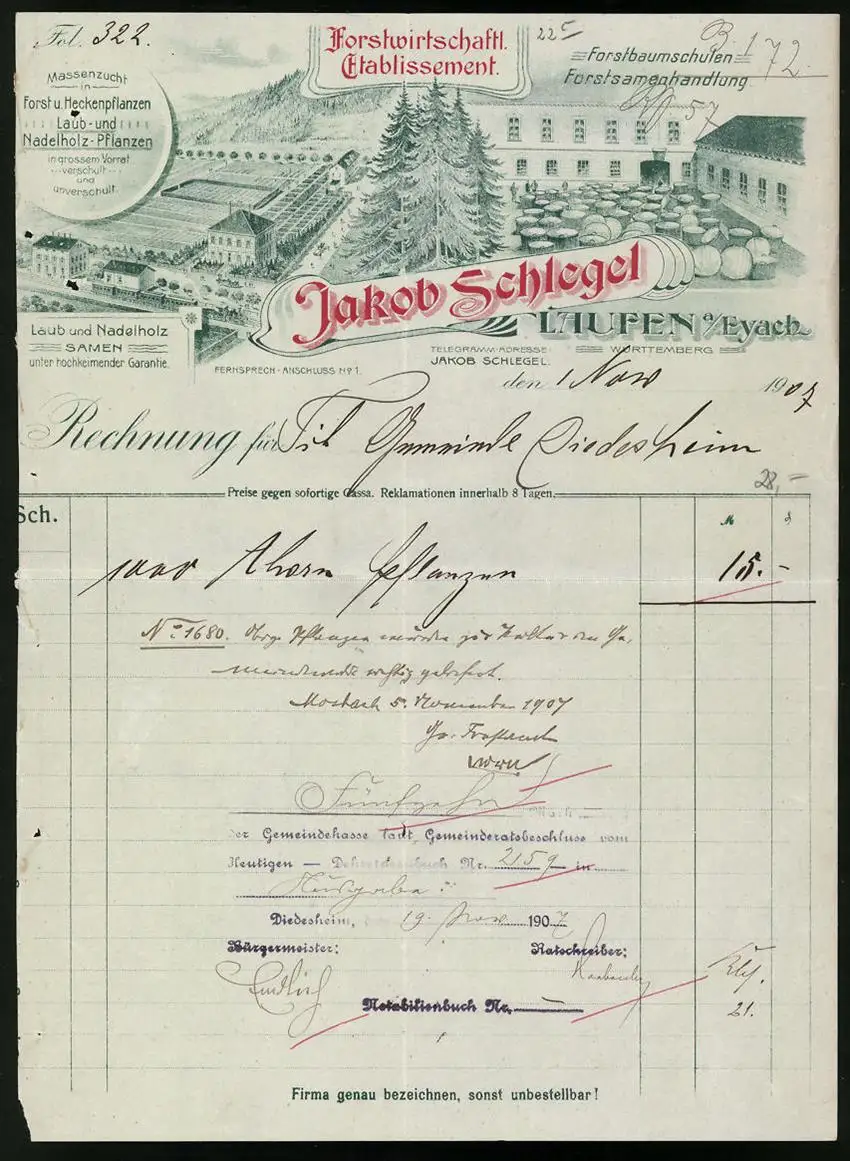 Fol. 322.
Forstwirtschaftl.
Etablissement.
B. 172
Forstbaumschulen
Forstsamenhandlung
57
Massenzucht
in
Forst u. Heckenpflanzen
Laub- und
Nadelholz-Pflanzen
in grossem Vorrat
verschult
und
unverschult.
Jakob Schlegel
LAUFEN a/Eyach
WÜRTTEMBERG
Laub und Nadelholz
SAMEN
unter hochkeimender Garantie.
FERNSPRECH-ANSCHLUSS Nº 1.
TELEGRAMM-ADRESSE:
JAKOB SCHLEGEL.
den 1 Nov 1907
Rechnung für Tit. Gemeinde Diedesheim
28,-
Preise gegen sofortige Cassa. Reklamationen innerhalb 8 Tagen.
Sch.
M
1000 Ahorn Pflanzen
15.-
Nº 1680. Obige Pflanzen wurden zur Kultur im
richtig geliefert.
Mosbach 5. November 1907
Fünfzehn Mark
der Gemeindekasse laut Gemeinderatsbeschluss vom
Heutigen — Dekretenbuch Nr. 2159 in
Ausgabe:
Diedesheim, 19. Nov. 1907
Bürgermeister:
Ratschreiber:
Endlich
Notabilienbuch Nr. —
21.
Firma genau bezeichnen, sonst unbestellbar!